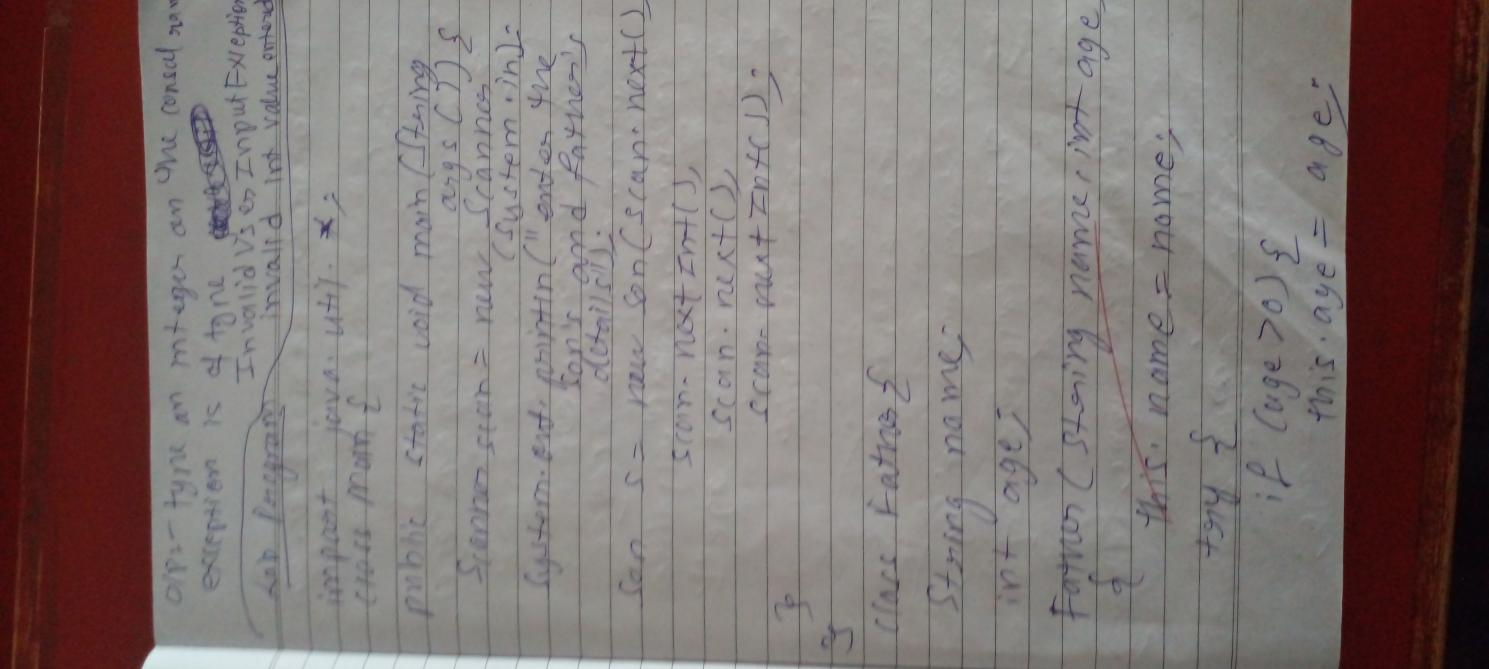 O/P:- type an integer an the consol
exception is of type
Invalid User Input Exception
Lab Program invalid int value entered
import java.util.*;
class main {
public static void main(String
args[]) {
Scanner scan = new Scanner
(System.in);
System.out.println("enter the
son's and father's
details");
Son s = new Son(scan.next(),
scan.nextInt(),
scan.next(),
scan.nextInt());
}
}
class Father {
String name;
int age;
Father(String name, int age)
{
this.name = name;
try {
if (age > 0) {
this.age = age;